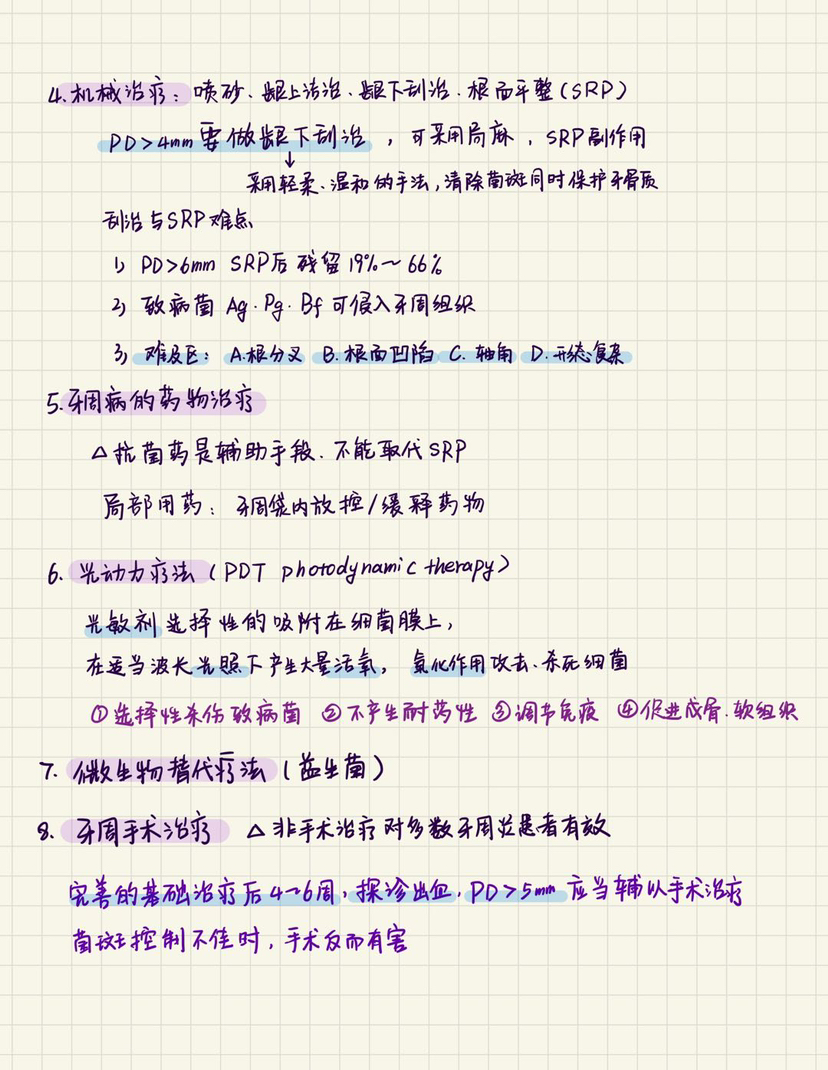 4.机械治疗：喷砂、龈上洁治、龈下刮治、根面平整(SRP)
PD>4mm要做龈下刮治，可采用局麻，SRP副作用
↓
采用轻柔、温和的手法,清除菌斑同时保护牙骨质
刮治与SRP难点
1) PD>6mm SRP后残留19%~66%
2) 致病菌 Ag.Pg.Bf可侵入牙周组织
3) 难及区：A.根分叉 B.根面凹陷 C.轴角 D.形态复杂
5.牙周病的药物治疗
△抗菌药是辅助手段、不能取代SRP
局部用药：牙周袋内放控/缓释药物
6.光动力疗法(PDT photodynamic therapy)
光敏剂选择性的吸附在细菌膜上,
在适当波长光照下产生大量活氧, 氧化作用攻击.杀死细菌
①选择性杀伤致病菌 ②不产生耐药性 ③调节免疫 ④促进成骨.软组织
7. 微生物替代疗法(益生菌)
8. 牙周手术治疗 △非手术治疗对多数牙周炎患者有效
完善的基础治疗后4~6周,探诊出血,PD>5mm应当辅以手术治疗
菌斑控制不佳时,手术反而有害